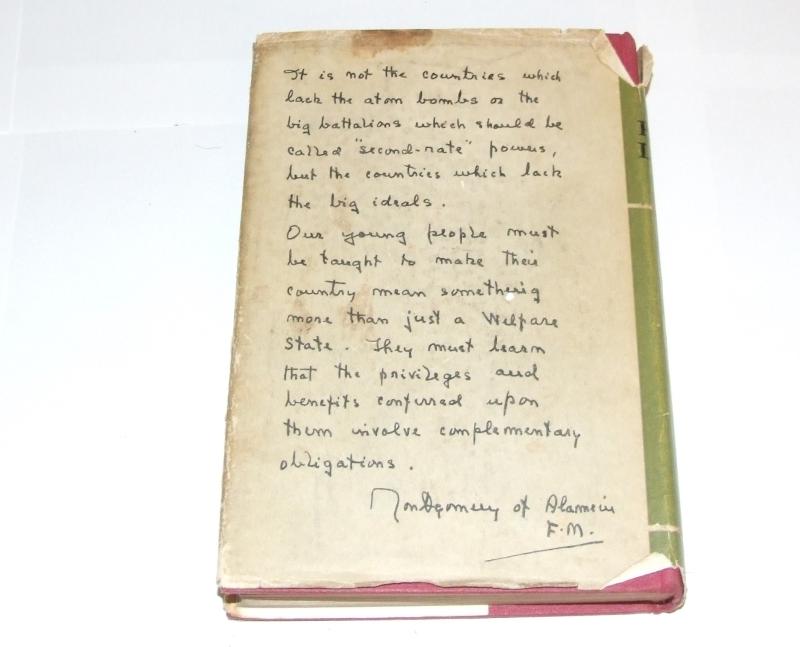 It is not the countries which
lack the atom bombs or the
big battalions which should be
called "second-rate" powers,
but the countries which lack
the big ideals.
Our young people must
be taught to make their
country mean something
more than just a Welfare
State. They must learn
that the privileges and
benefits conferred upon
them involve complementary
obligations.
Montgomery of Alamein
F.M.